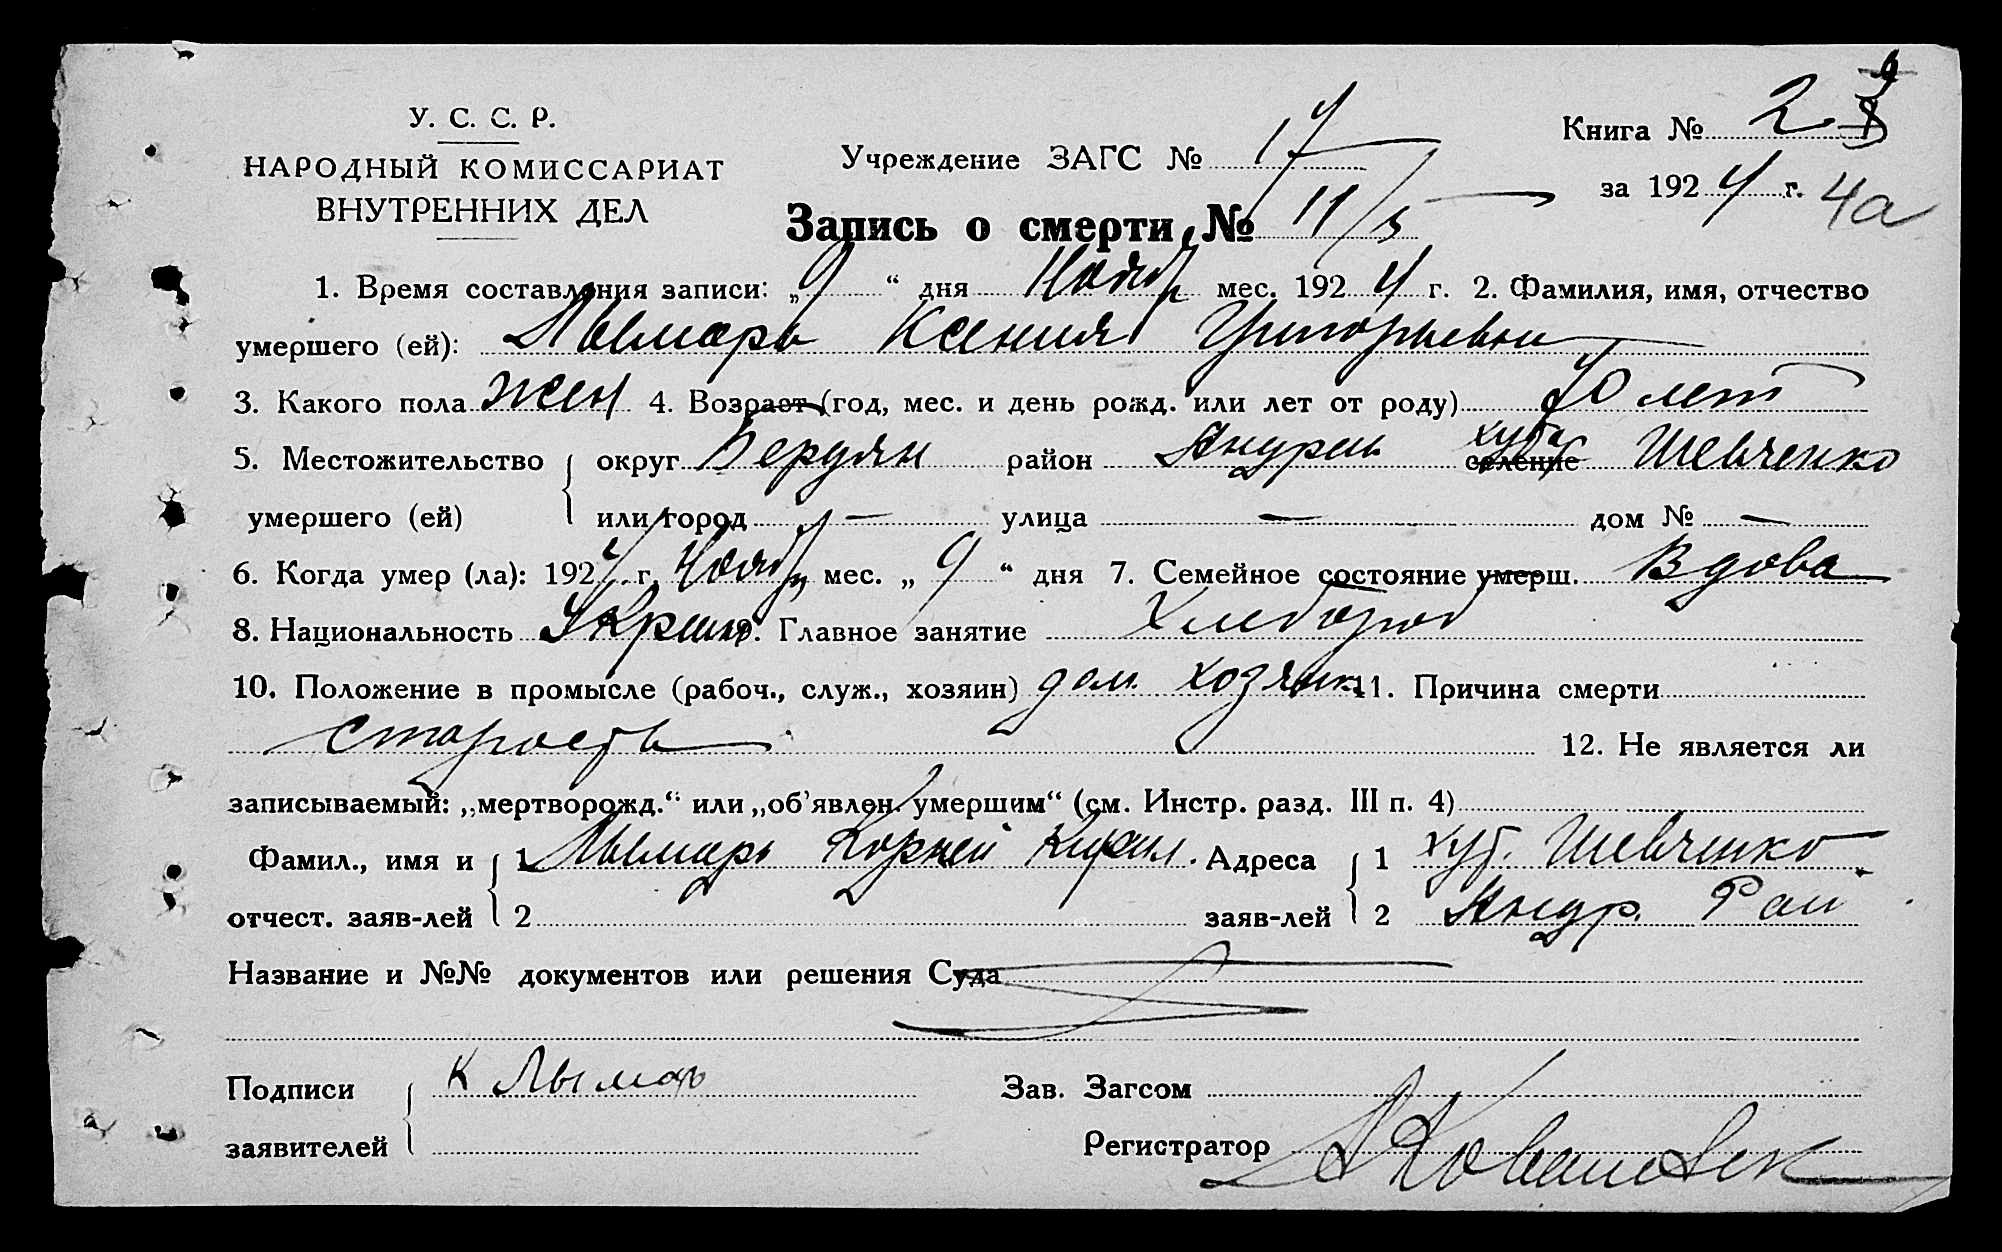 У. С. С. Р.
НАРОДНЫЙ КОМИССАРИАТ
ВНУТРЕННИХ ДЕЛ
Учреждение ЗАГС № 17
Книга № 2
за 1924 г. 4а
Запись о смерти № 11/5
1. Время составления записи: „9“ дня Нояб мес. 1924 г. 2. Фамилия, имя, отчество
умершего (ей): Лымарь Ксения Григорьевн
3. Какого пола жен 4. Возраст (год, мес. и день рожд. или лет от роду) 70 лет
5. Местожительство округ Бердян район Андреев хут. селение Шевченко
умершего (ей) или город — улица — дом № —
6. Когда умер (ла): 1924 г. Нояб мес. „9“ дня 7. Семейное состояние умерш. Вдова
8. Национальность Украин 9. Главное занятие Хлебороб
10. Положение в промысле (рабоч., служ., хозяин) дом. хозяик 11. Причина смерти
старость 12. Не является ли
записываемый: „мертворожд.“ или „об'явлен. умершим“ (см. Инстр. разд. III п. 4)
Фамил., имя и 1 Лымарь Корней Кирил. Адреса 1 хут. Шевченко
отчест. заяв-лей 2 заяв-лей 2 Андр. Рай
Название и №№ документов или решения Суда
Подписи К Лымарь Зав. Загсом
заявителей Регистратор